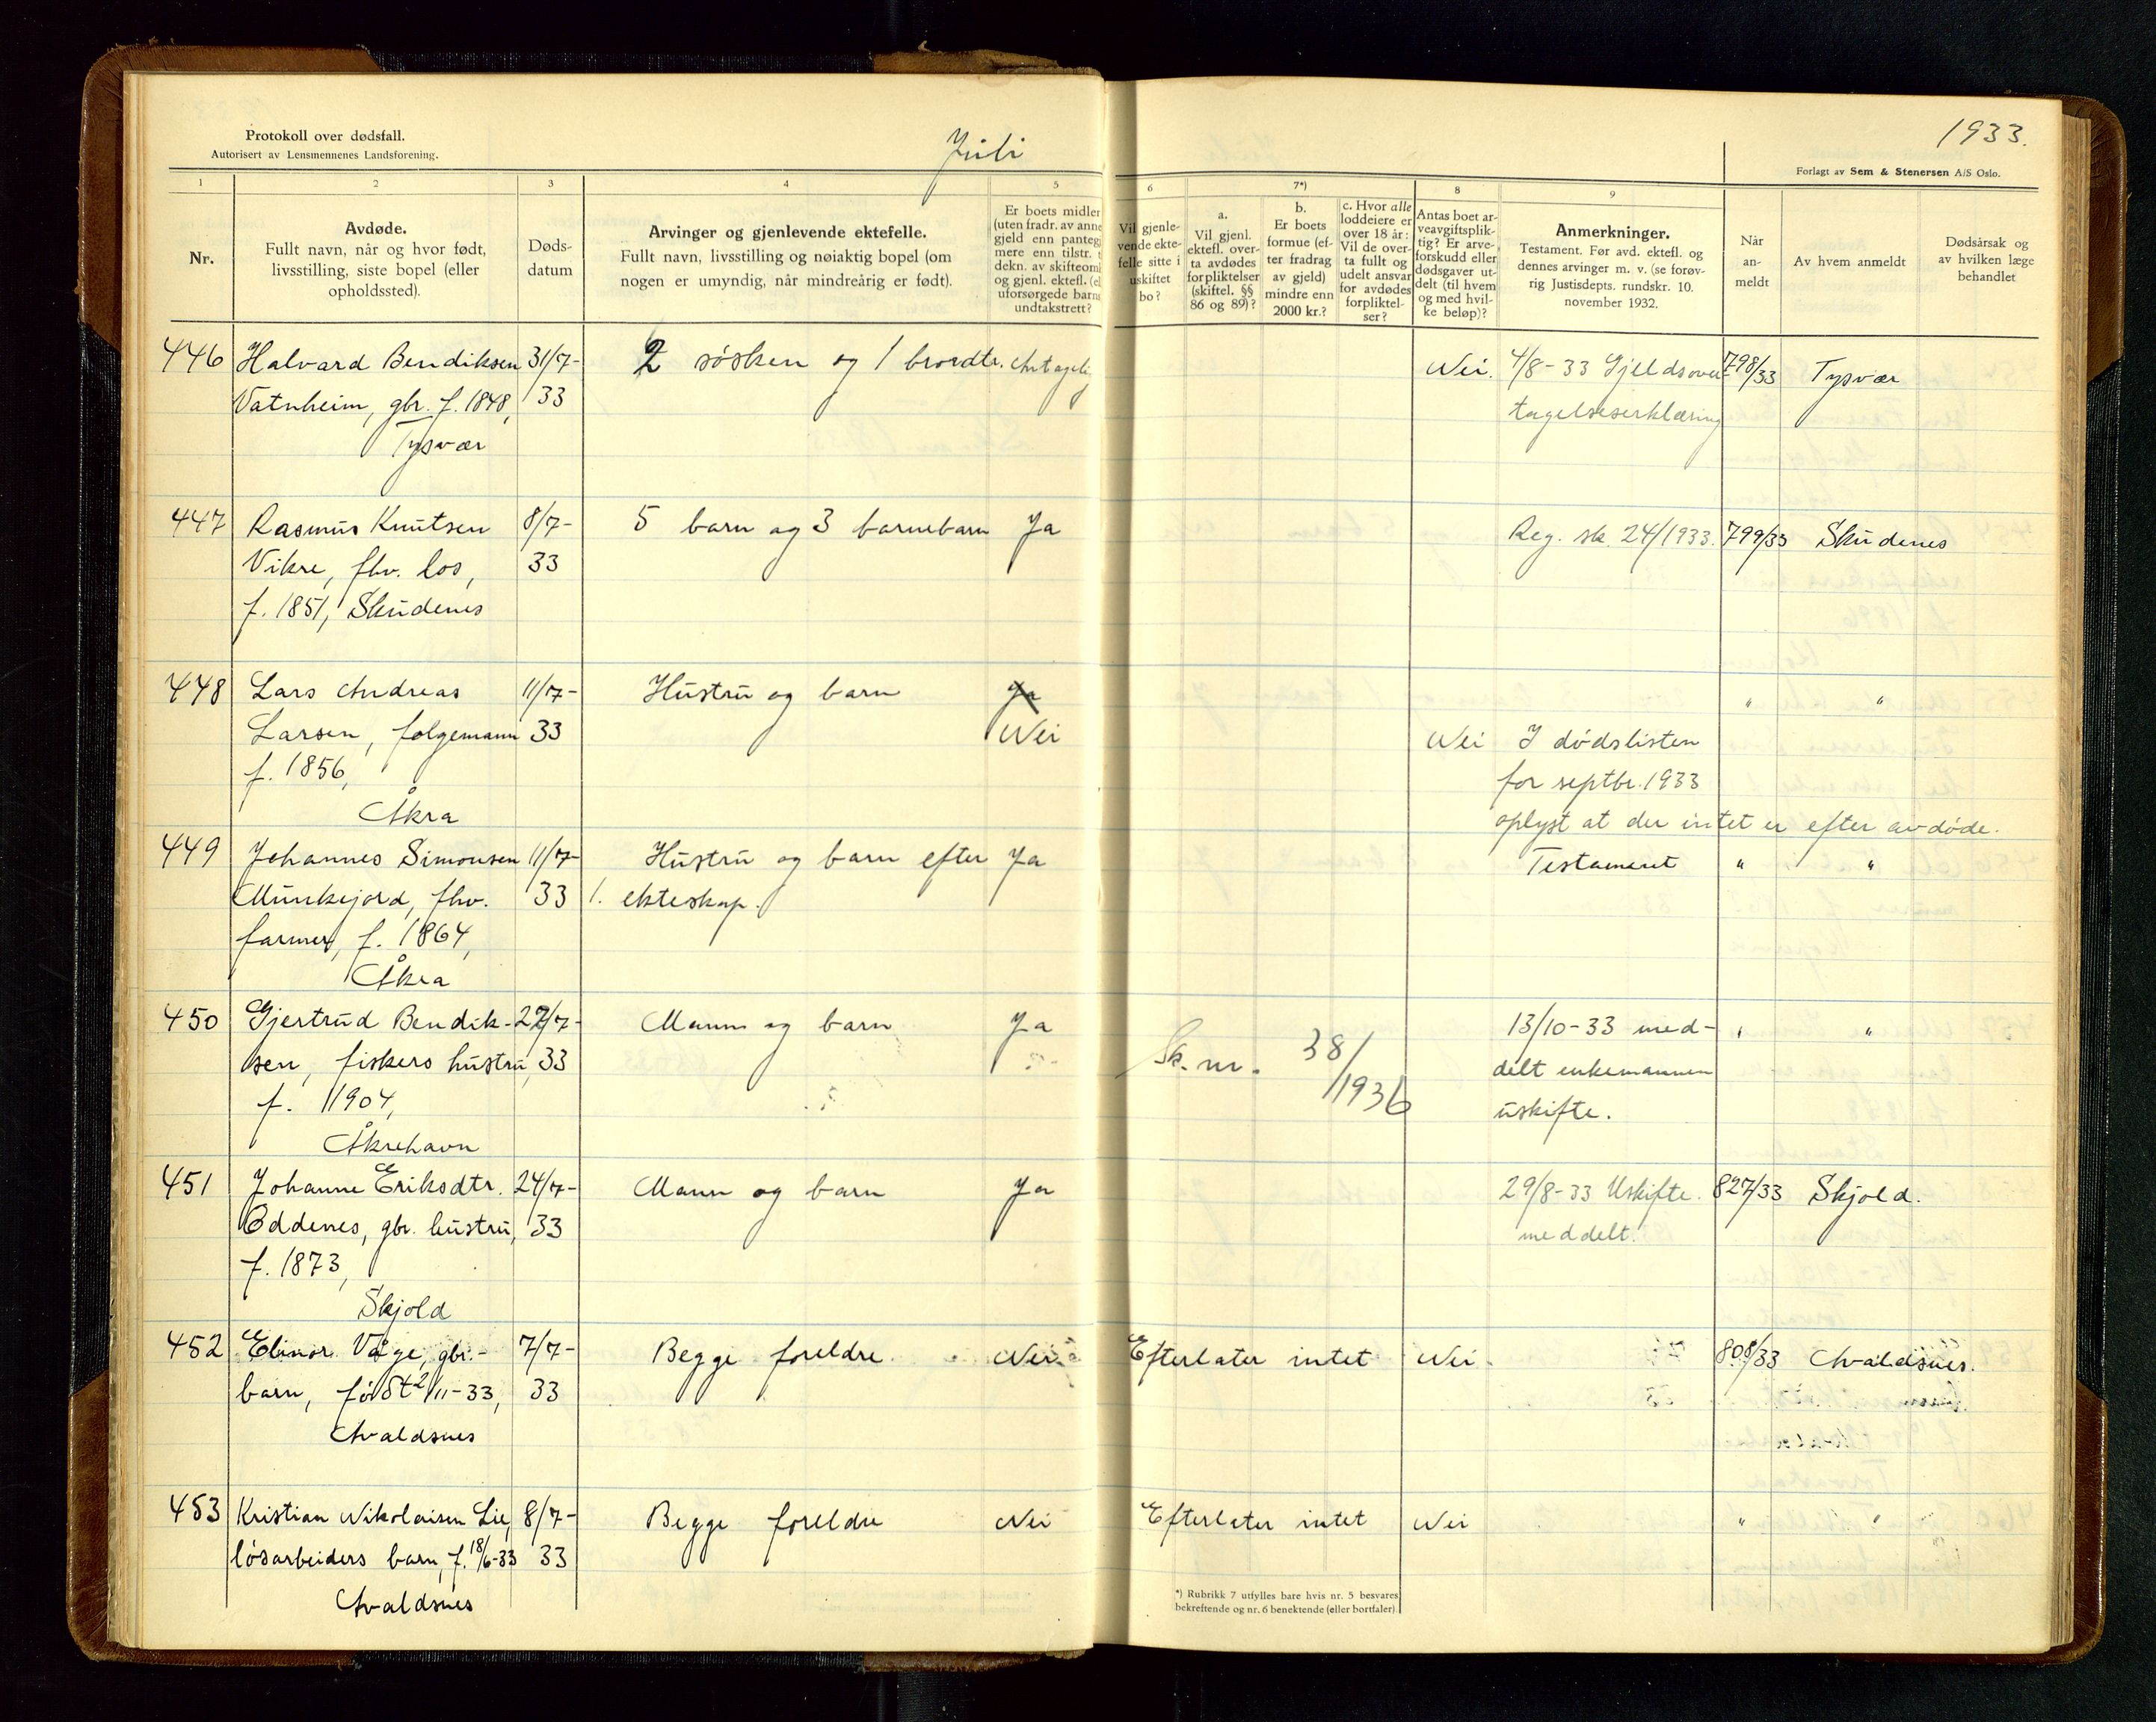 Protokoll over dødsfall.
Autorisert av Lensmennenes Landsforening.
Juli
1933.
Forlagt av Sem & Stenersen A/S Oslo.
1 2 3 4 5 6 7*) 8 9
Nr.
Avdøde.
Fullt navn, når og hvor født,
livsstilling, siste bopel (eller
opholdssted).
Døds-
datum
Arvinger og gjenlevende ektefelle.
Fullt navn, livsstilling og nøiaktig bopel (om
nogen er umyndig, når mindreårig er født).
Er boets midler
(uten fradr. av anne
gjeld enn panteg
mere enn tilstr. t
dekn. av skifteom
og gjenl. ektefl. (el
uforsørgede barns
undtakstrett?
Vil gjenle-
vende ekte-
felle sitte i
uskiftet
bo?
a.
Vil gjenl.
ektefl. over-
ta avdødes
forpliktelser
(skiftel. §§
86 og 89)?
b.
Er boets
formue (ef-
ter fradrag
av gjeld)
mindre enn
2000 kr.?
c. Hvor alle
loddeiere er
over 18 år:
Vil de over-
ta fullt og
udelt ansvar
for avdødes
forpliktel-
ser?
Antas boet ar-
veavgiftsplik-
tig? Er arve-
forskudd eller
dødsgaver ut-
delt (til hvem
og med hvil-
ke beløp)?
Anmerkninger.
Testament. Før avd. ektefl. og
dennes arvinger m. v. (se forøv-
rig Justisdepts. rundskr. 10.
november 1932.
Når
an-
meldt
Av hvem anmeldt
Dødsårsak og
av hvilken læge
behandlet
446 Halvard Bendiksen 31/7- 2 søsken og 1 brordtr. Antageli Nei. 4/8-33 Gjeldsover- 798/33 Tysvær
Vatnheim, gbr. f. 1848, 33 tagelseserklæring
Tysvær
447 Rasmus Knutsen 8/7- 5 barn og 3 barnebarn Ja Reg. sk. 24/1933. 799/33 Skudenes
Vikre, fhv. los, 33
f. 1851, Skudenes
448 Lars Andreas 11/7- Hustru og barn Ja " "
Larsen, følgemann 33 Nei Nei I dødslisten
f. 1856, for septbr. 1933
Åkra oplyst at der intet er efter avdøde.
449 Johannes Simonsen 11/7- Hustru og barn efter Ja Testament " "
Munkejord, fhv. 33 1. ekteskap.
farmer, f. 1864,
Åkra
450 Gjertrud Bendik- 27/7- Mann og barn Ja Sk. nr. 38/1936 13/10-33 med- " "
sen, fiskers hustru, 33 delt enkemannen
f. 1904, uskifte.
Åkrehavn
451 Johanne Eriksdtr. 24/7- Mann og barn Ja 29/8-33 Uskifte. 827/33 Skjold.
Oddenes, gbr. hustru, 33 meddelt.
f. 1873,
Skjold
452 Elinor Våge, gbr.- 7/7- Begge foreldre Nei Efterlater intet Nei 808/33 Avaldsnes.
barn, født 2/11-33, 33
Avaldsnes
453 Kristian Nikolaisen Lie, 8/7- Begge foreldre Nei Efterlater intet Nei " "
løsarbeiders barn, f. 18/6-33 33
Avaldsnes
*) Rubrikk 7 utfylles bare hvis nr. 5 besvares
bekreftende og nr. 6 benektende (eller bortfaler).